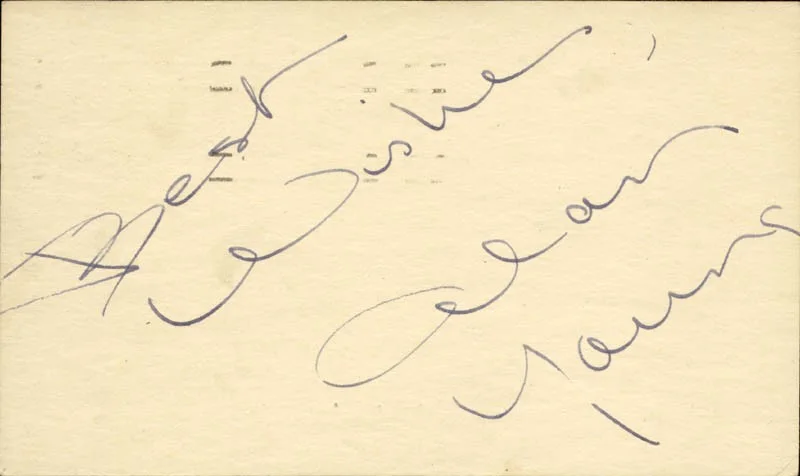 Best
Wishes,
Alan
Young